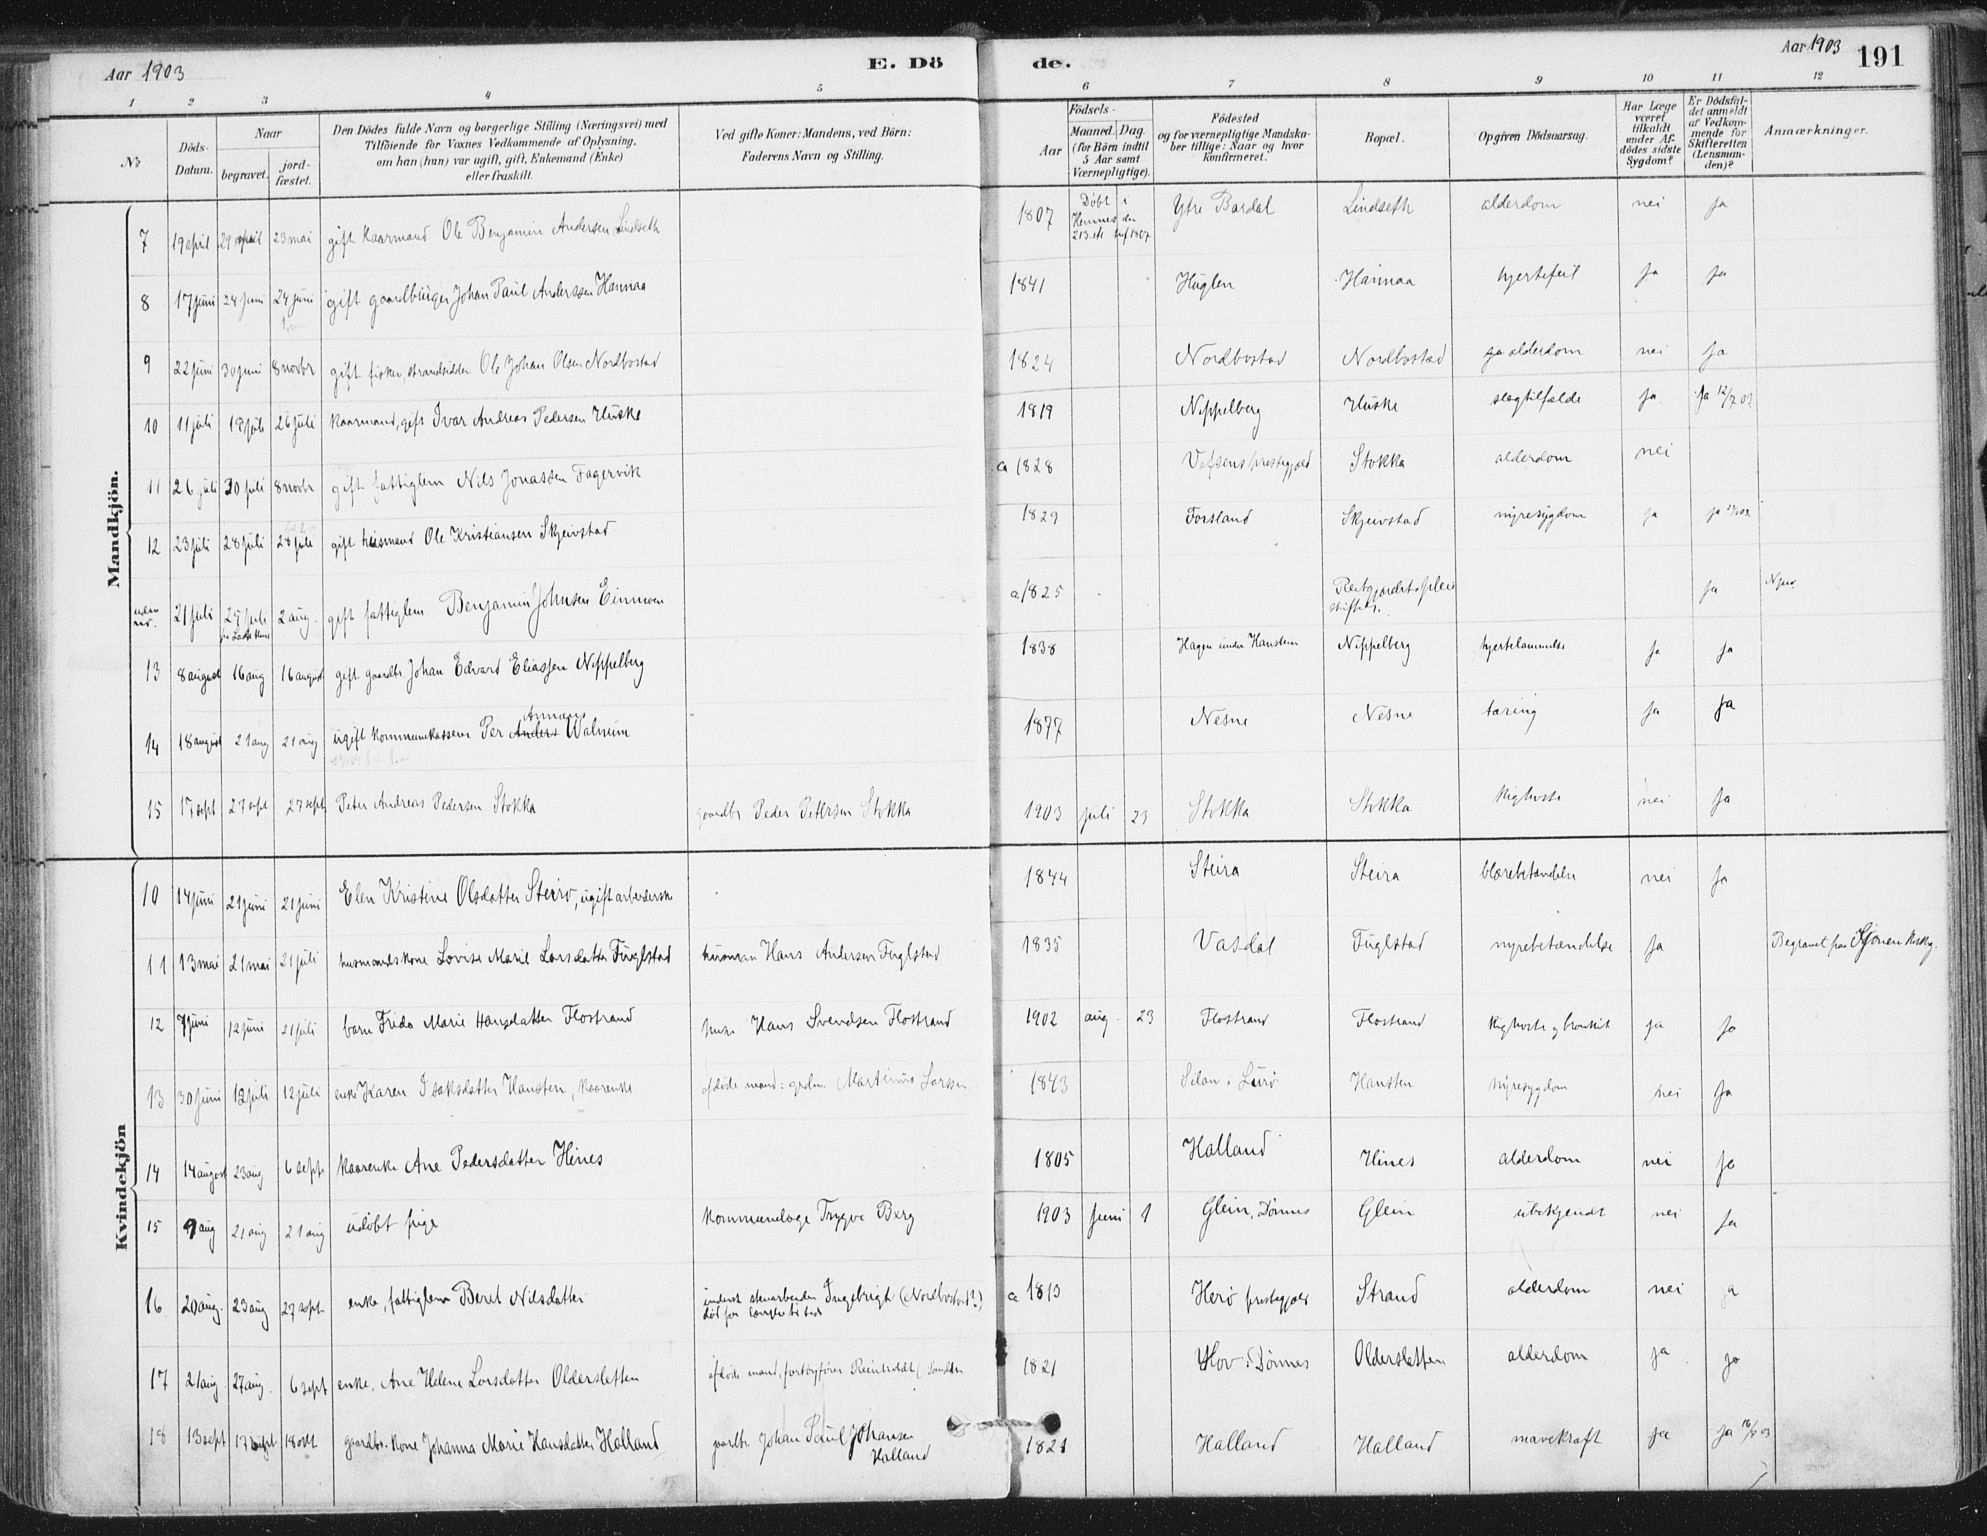 Aar 1903 E. Dö de. Aar 1903 191
1 2 3 4 5 6 7 8 9 10 11 12
No Döds-Datum. Naar begravet. jord-fæstet. Den Dödes fulde Navn og borgerlige Stilling (Næringsvei) med Tilföiende for Voxnes Vedkommende af Oplysning, om han (hun) var ugift, gift, Enkemand (Enke) eller fraskilt. Ved gifte Koner: Mandens, ved Börn: Faderens Navn og Stilling. Födsels- Aar Maaned. Dag. (for Börn indtil 5 Aar samt Værnepligtige). Födested og for værnepligtige Mandskaber tillige: Naar og hvor konfirmeret. Bopæl. Opgiven Dödsaarsag. Har Læge været tilkaldt under Afdödes sidste Sygdom? Er Dödsfaldet anmeldt af Vedkommende for Skifteretten (Lensmanden)? Anmærkninger.
Mandkjön.
7 19 april 29 april 23 mai gift kaarmand Ole Benjamin Andersen Lindseth 1807 Döbt i Hemnes den Ytre Bardal Lindseth alderdom nei ja
8 17 juni 24 juni 24 juni gift gaardbruger Johan Paul Anderssen Hannaa 1841 Huglen Hannaa hjertefeil ja ja
9 22 juni 30 juni 8 novbr gift fisker, strandsidder Ole Johan Olsen Nordbostad 1824 Nordbostad Nordbostad alderdom nei ja
10 11 juli 18 juli 26 juli kaarmand, gift Ivar Andreas Pedersen Huske 1819 Nippelberg Huske slagtilfælde ja ja 12/7 03
11 26 juli 30 juli 8 novbr gift fattiglem Nils Jonassen Fagervik ca 1828 Vefsens prestegjeld Stokka alderdom nei
12 23 juli 28 juli 28 juli gift husmand Ole Kristiansen Skjeivstad 1829 Forsland Skjeivstad nyresygdom ja ja
uden no. 21 juli 25 juli 2 aug. gift fattiglem Benjamin Johnsen Einmoen ca 1825 ja
13 8 august 16 aug 16 august gift gaardbr. Johan Edvard Eliassen Nippelberg 1838 Hagen under Hansten Nippelberg hjertelammelse ja ja
14 18 august 21 aug 21 aug ugift kommunekasserer Per Anders Walnum 1877 Nesne Nesne tæring ja ja
15 17 sept 27 sept 27 sept Peter Andreas Pedersen Stokka gaardbr Peder Petersen Stokka 1903 juli 23 Stokka Stokka kighoste nei ja
Kvindekjön
10 14 juni 21 juni 21 juni Elen Kristine Olsdatter Steiro, ugift arbeiderske 1844 Steira Steira blærebetændelse nei ja
11 13 mai 21 mai 21 juli husmandskone Lovise Marie Larsdatter Fuglstad husman Hans Andersen Fuglstad 1835 Vasdal Fuglstad nyrebetændelse ja Begravet paa Sjonen
12 7 juni 12 juni 21 juli barn Frida Marie Hansdatter Flostrand Hans Svendsen Flostrand 1902 aug. 23 Flostrand Flostrand kighoste og bronkit ja ja
13 30 juni 12 juli 12 juli enke Karen Isaksdatter Hansten, kaarenke afdöde mand: Martinus Larssen 1843 Silan i Lurö Hansten nyresygdom nei ja
14 14 august 23 aug 6 sept kaarenke Ane Pedersdatter Hines 1805 Halland Hines alderdom nei ja
15 9 aug 21 aug 21 aug udöbt pige kommunelæge Trygve Berg 1903 Juni 1 Glein, Dönnes Glein ubekjendt nei ja
16 20 aug. 23 aug 27 sept. enke, fattiglem Beret Nilsdatter inderst stenarbeider Ingebrigt (Nordbostad?) ca 1813 Herö prestegjeld Strand alderdom nei ja
17 21 aug 27 aug. 6 sept enke, Ane Helene Larsdatter Oldersletten afdöde mand, Reinholdt 1821 Hov i Dönnes Oldersletten alderdom ja ja
18 13 sept 17 sept 18 okt gaardbr. kone Johanna Marie Hansdatter Halland gaardbr. Johan Paul Johansen Halland 1821 Halland Halland mavekræft ja ja